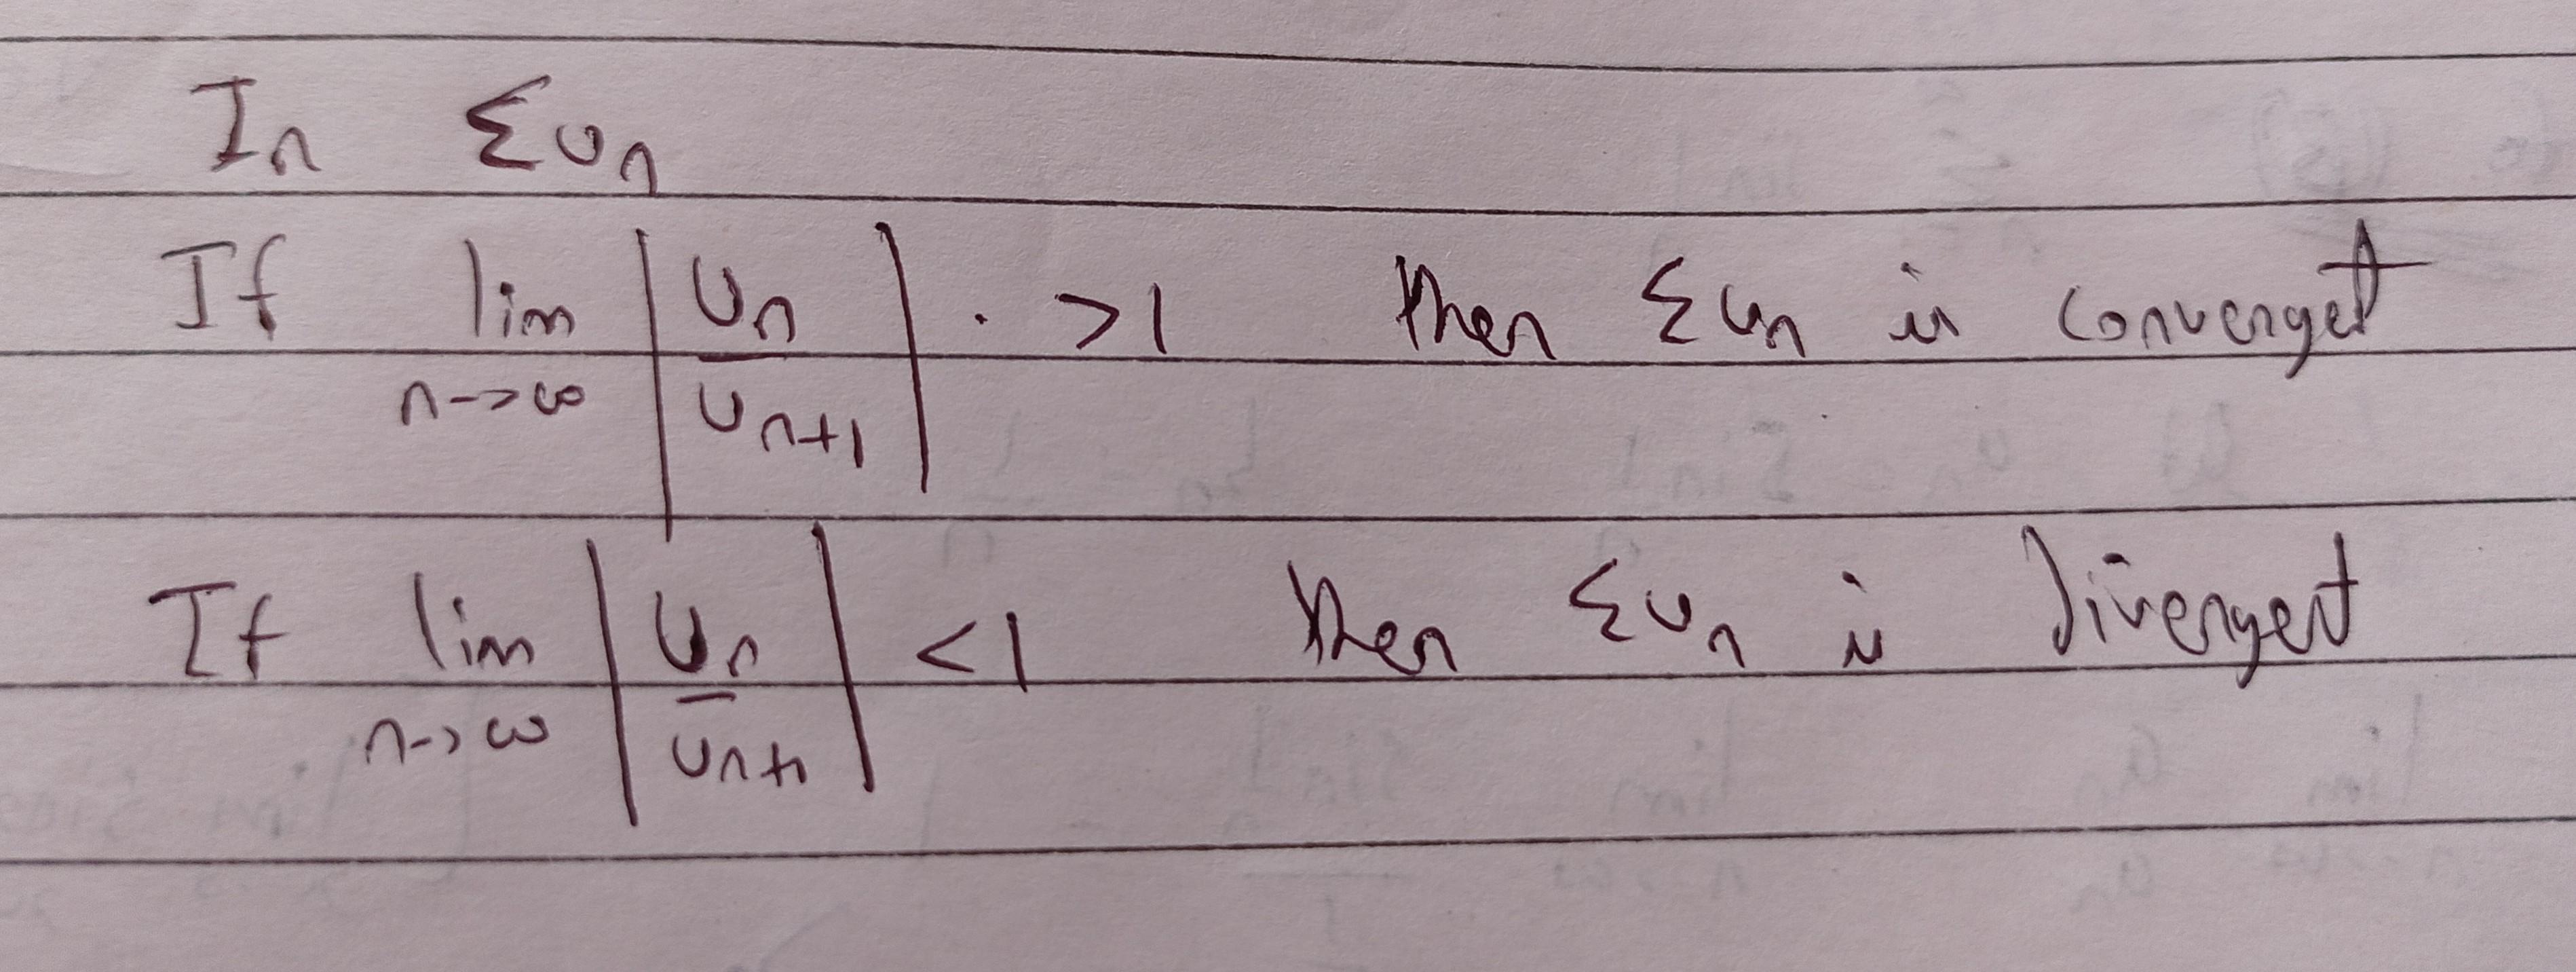 In Σun
If lim n->∞ |un/un+1| . >1 then Σun is convergent
If lim n->∞ |un/un+1| <1 then Σun is Divergent